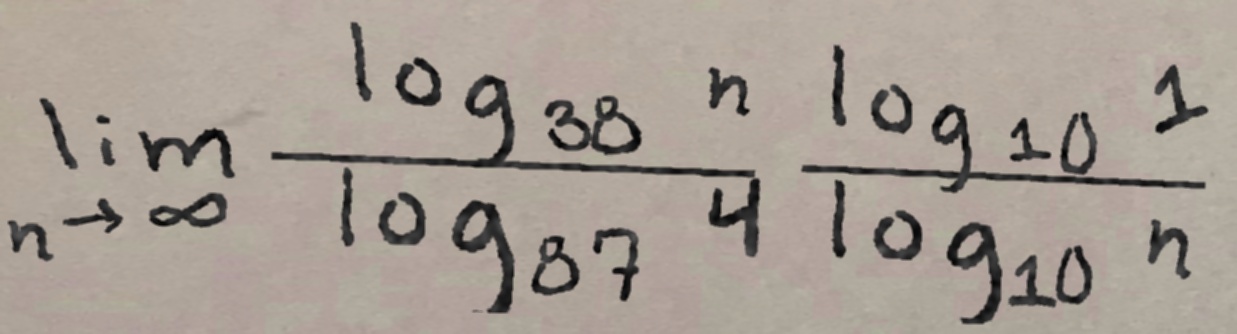 \lim_{n \to \infty} \frac{\log_{38} n}{\log_{87} 4} \frac{\log_{10} 1}{\log_{10} n}